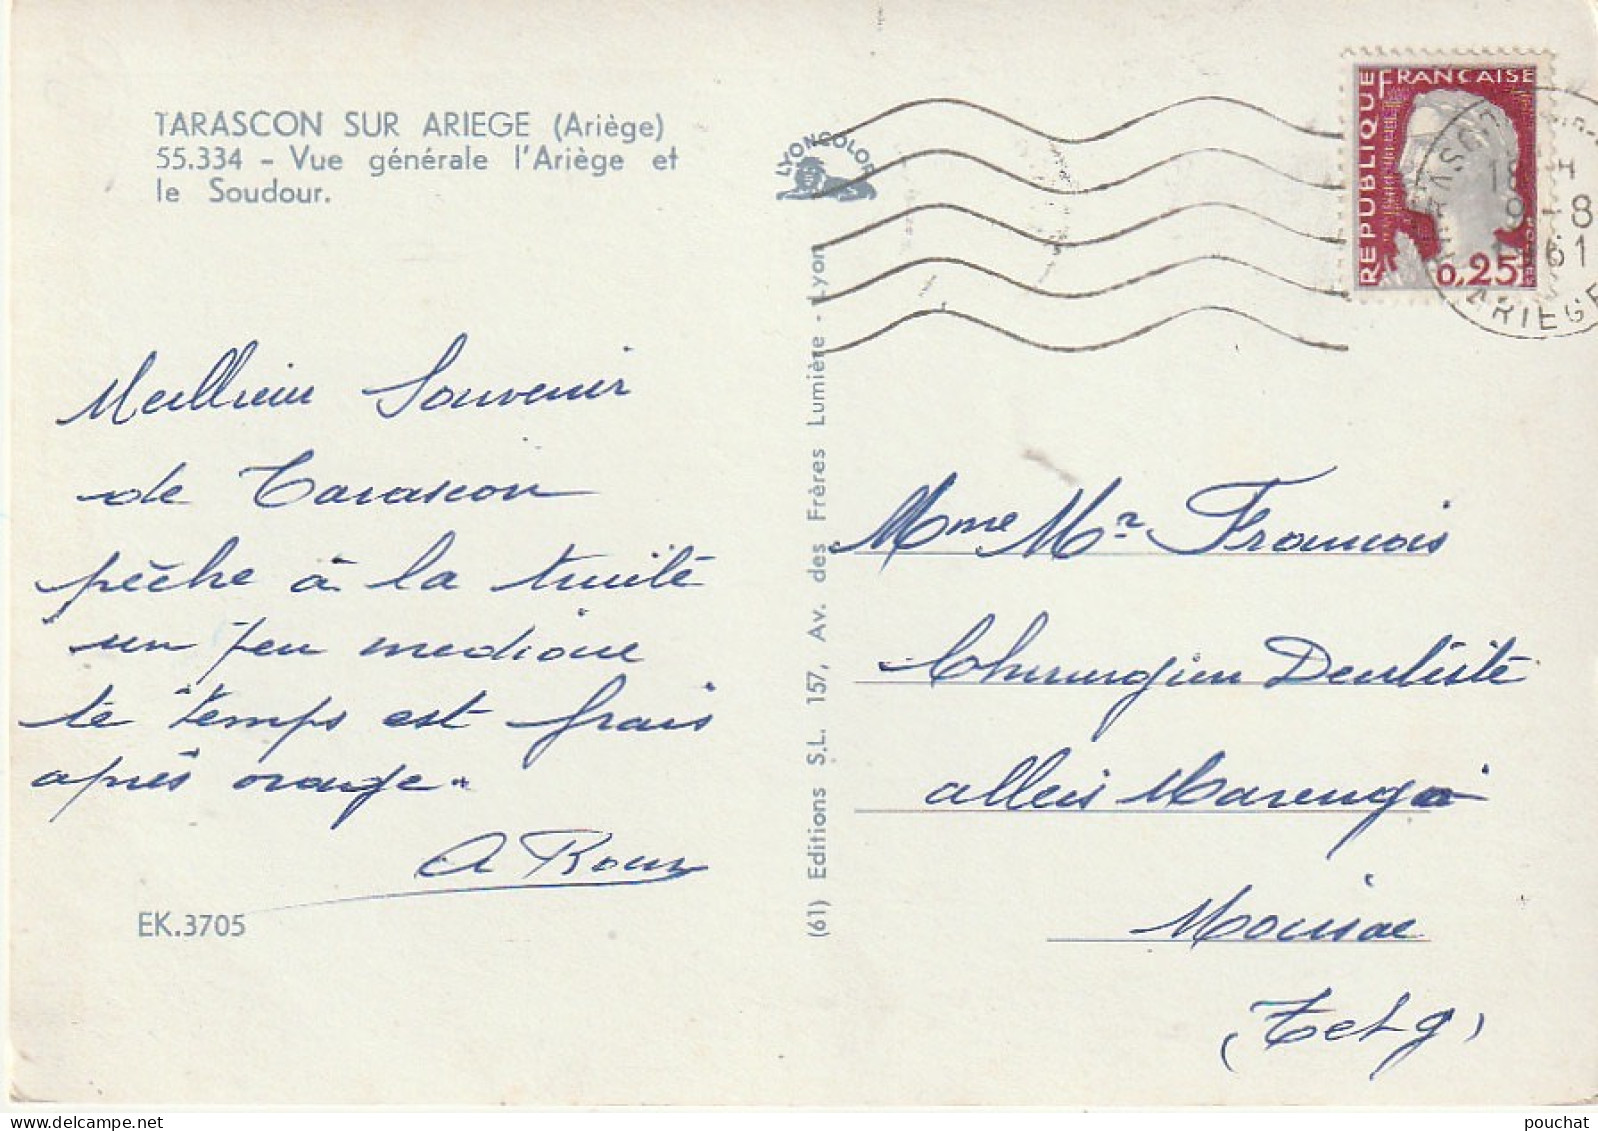 TARASCON SUR ARIEGE (Ariège)
55.334 - Vue générale l'Ariège et
le Soudour.
LYONCOLOR
REPUBLIQUE FRANÇAISE
0,25
18 H
9 - 8
1961
ARIEGE
Meilleur Souvenir
de Tarascon
pêche à la truite
un peu mediocre
le temps est frais
après orage.
A Roux
EK.3705
(61) Editions S.L. 157, Av. des Frères Lumière - Lyon
Mme Mr François
Chirurgien Dentiste
allées Marengo
Moissac
(T et g)
pouchat